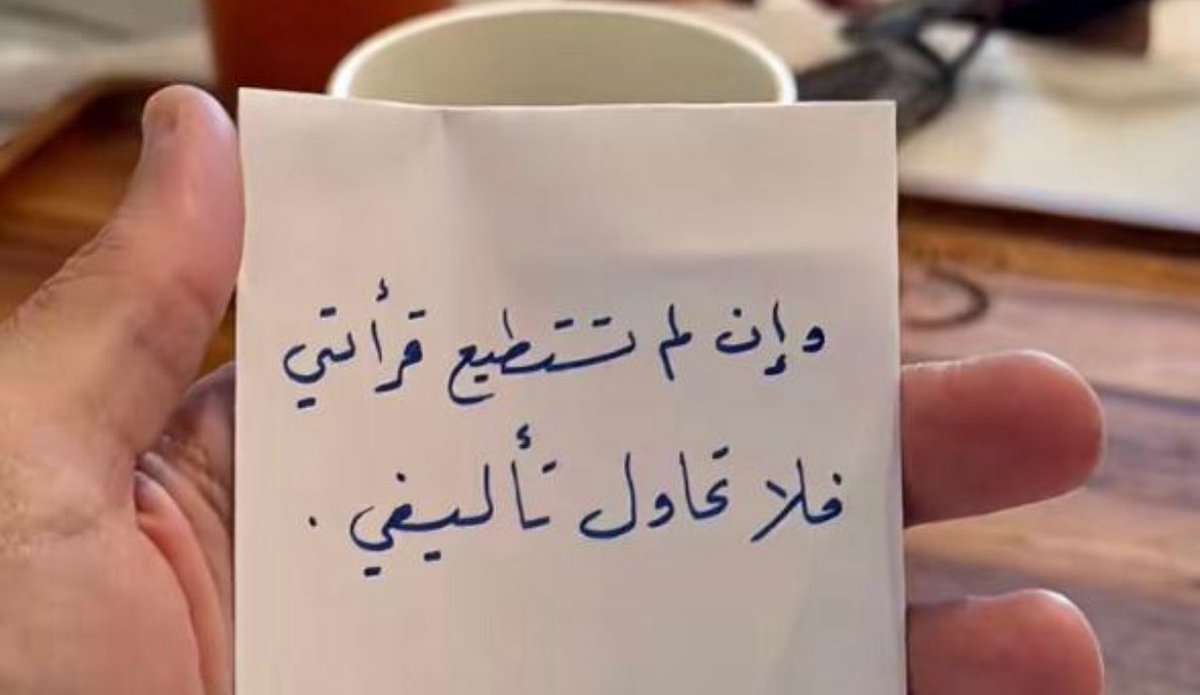 وإن لم تستطيع قرأتي
فلا تحاول تأليفي .